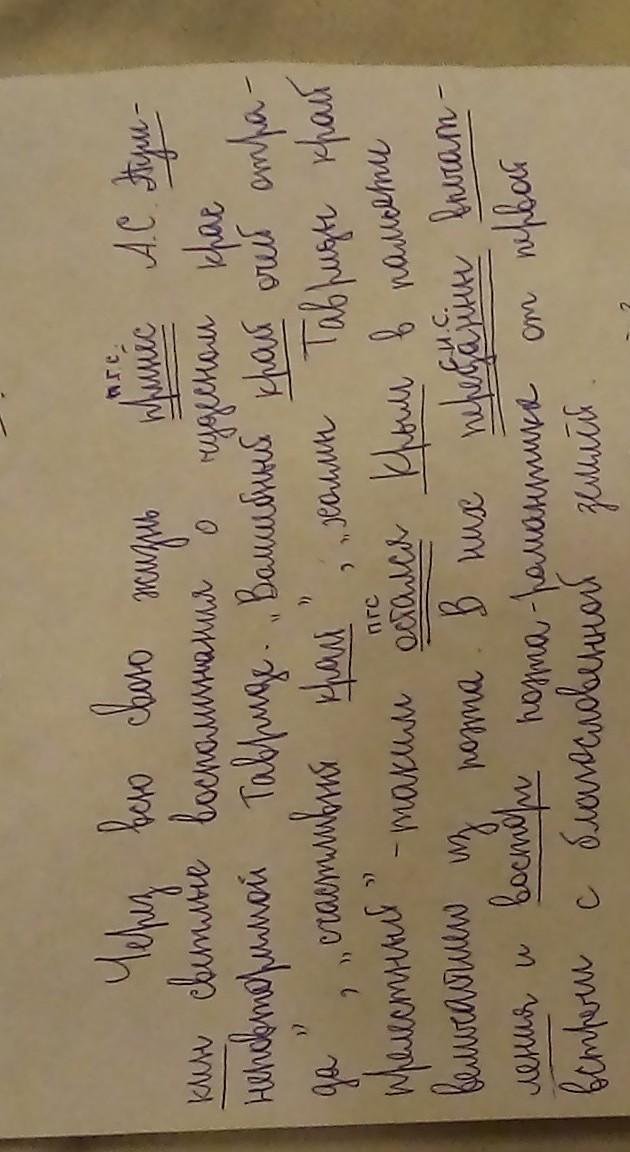 Через всю свою жизнь принёс А.С. Пуш-
п.г.с.
кин светлые воспоминания о чудесном крае
неповторимой Тавриде. „Волшебный край очей отра-
да", „счастливый край", „холмы Тавриды край
прелестный" - таким остался Крым в памяти
пгс
величайшего из поэта. В них переданны впечат-
с.и.с.
ления и восторг поэта-романтика от первой
встречи с благословенной землёй.